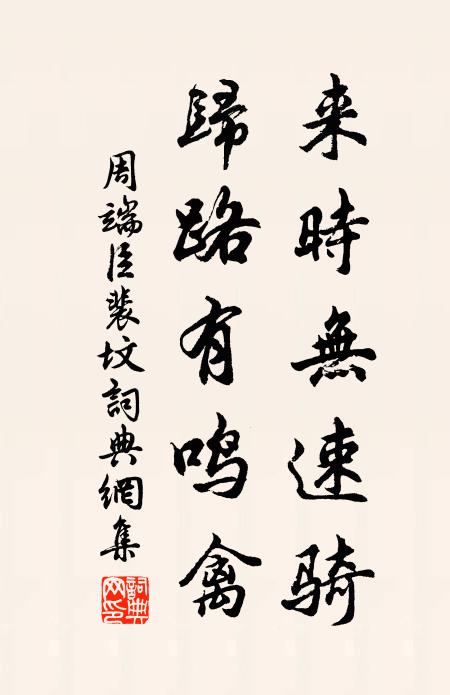 来時無速骑
歸路有鸣禽
周端臣裴坟詞典網集
詞典网印